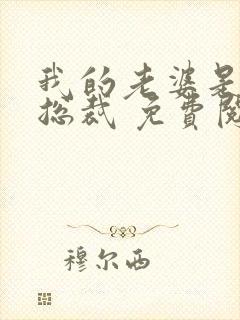 我的老婆是
总裁 免費閱
穆尔西